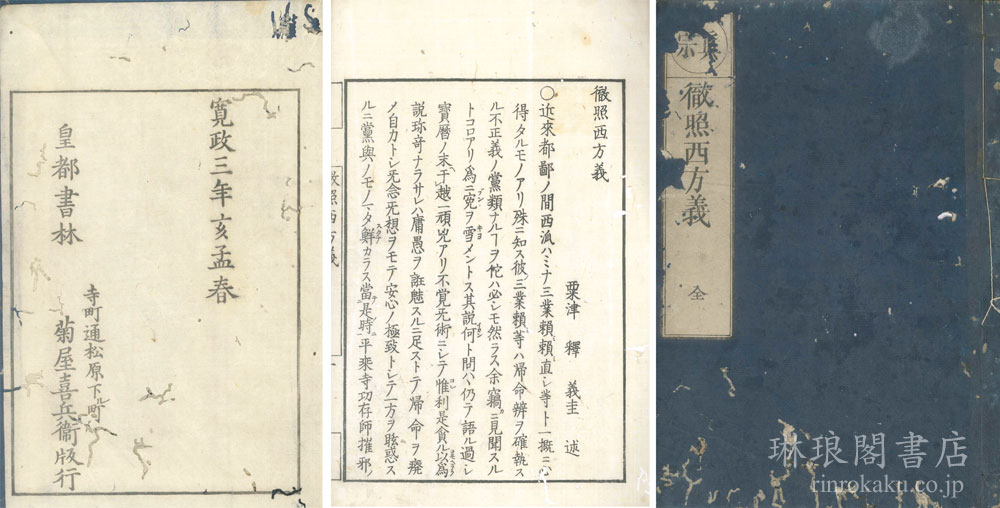 真宗
徹照西方義
全
徹照西方義
粟津 釋 義圭 述
〇近來都鄙ノ間西派ハミナ三業賴賴直シ等ト一概ニ心
得タルモノアリ殊ニ知ス彼三業賴等ハ歸命辨ヲ確執ス
ル不正義ノ黨類ナルヿヲ佗ハ必シモ然ラス余竊ニ見聞スル
トコロアリ爲ニ寃ヲ雪メントス其說何ト問ハヽ仍テ語ル過シ
寳曆ノ末于越一頑兇アリ不覚无術ニシテ惟利是貪ル以爲
說珎奇ナラサレハ庸愚ヲ誑魅スルニ足ストテ歸命ヲ廢
ノ自力トシ无念无想ヲモテ安心ノ極致トシテ一方ヲ眩惑ス
ルニ黨與ノモノマタ鮮カラス當是時平乘寺功存師摧邪ノ
徹照西方義
寛政三年亥孟春
皇都書林
寺町通松原下ル町
菊屋喜兵衞版行
琳琅閣書店
rinrokaku.co.jp